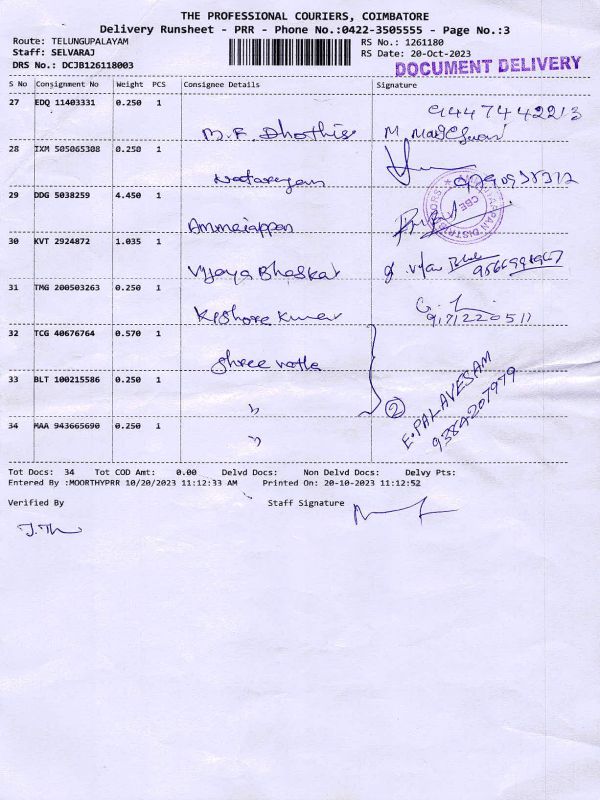 THE PROFESSIONAL COURIERS, COIMBATORE
Delivery Runsheet - PRR - Phone No.:0422-3505555 - Page No.:3
Route: TELUNGUPALAYAM RS No.: 1261180
Staff: SELVARAJ RS Date: 20-Oct-2023
DRS No.: DCJB126118003 DOCUMENT DELIVERY
S No Consignment No Weight PCS Consignee Details Signature
27 EDQ 11403331 0.250 1 9447442213
M.R Dhothis
28 IXM 505065308 0.250 1
29 DDG 5038259 4.450 1
Ammaiappan
30 KVT 2924872 1.035 1
Vijaya Bhaskar
31 TMG 200503263 0.250 1
Kishore Kumar 9171220511
32 TCG 40676764 0.570 1
Shree
33 BLT 100215586 0.250 1
" 2 E.PALAVESAM
9384207979
34 MAA 943665690 0.250 1
"
Tot Docs: 34 Tot COD Amt: 0.00 Delvd Docs: Non Delvd Docs: Delvy Pts:
Entered By :MOORTHYPRR 10/20/2023 11:12:33 AM Printed On: 20-10-2023 11:12:52
Verified By Staff Signature